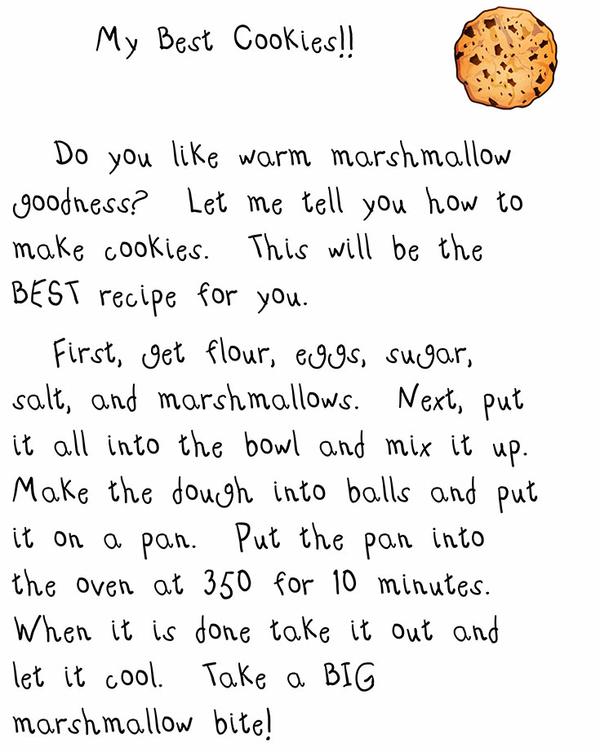 My Best Cookies!!
Do you like warm marshmallow
goodness? Let me tell you how to
make cookies. This will be the
BEST recipe for you.
First, get flour, eggs, sugar,
salt, and marshmallows. Next, put
it all into the bowl and mix it up.
Make the dough into balls and put
it on a pan. Put the pan into
the oven at 350 for 10 minutes.
When it is done take it out and
let it cool. Take a BIG
marshmallow bite!